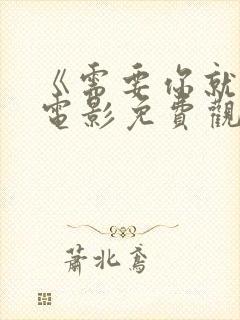 《需要你就
電影免費觀
蕭北鳶